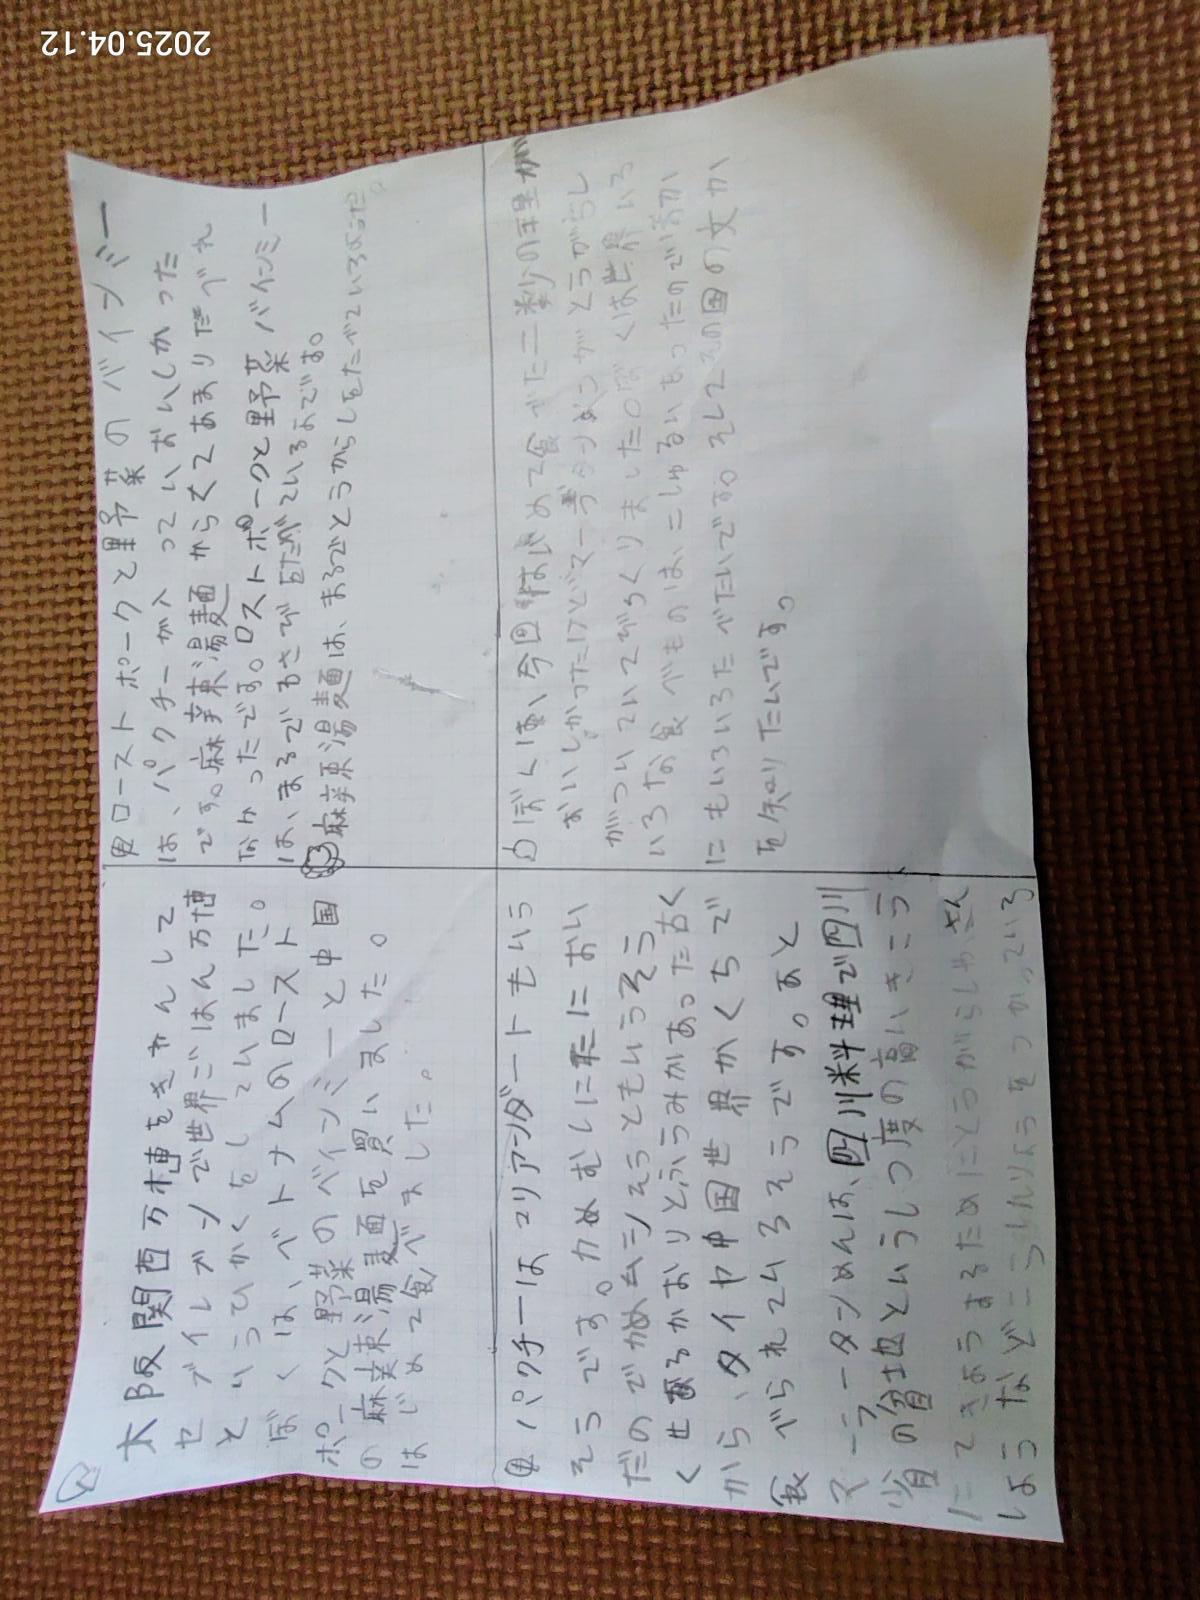 大阪関西万博をきねんして
セブイレブンで世界ごはん万博
というきかくをしていました。
ぼくは、ベトナムのロースト
ポークと野菜のバインミーと中国
の麻辣湯麺を買いました。
はじめて食べました。
ローストポークと野菜のバインミー
は、パクチーが入っていおいしかった
です。麻辣湯麺からくてあまりたべれ
なかったです。ロストポークと野菜バインミー
は、まるで
麻辣湯麺は、まるでとうがらしをたべているようだ。
パクチーはコリアンダートもいう
そうです。カめむしににたにおい
だのでカメムシそうともいうそう
くせあるかおりとふうみがあった古く
から、タイヤ中国世界かくちで
食べられているそうです。あと
マーラータンめんは、四川料理で四川
省の盆地というしつ度の高いきこう
にてきようするためにとうがらしやさん
しょうなどこうしんりょうをつかっている
ぼくは、今回はじめて食べた二つの料理が
おいしかったけどマーラータンめんがとうがらし
がついていてびっくりました。ぼくは世界いろ
いろな食べものは、二しゅるいあったのでほか
にもいろいろたべたいです。そしてその国の文か
を知りたいです。
2025.04.12